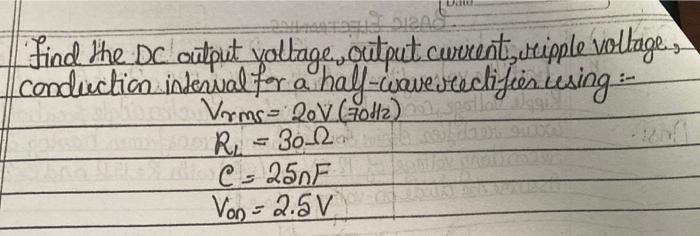 Find the DC output voltage, output current, ripple voltage,
conduction interval for a half-wave rectifier using :-
Vrms = 20V (70Hz)
RL = 30Ω
C = 25nF
Von = 2.5V